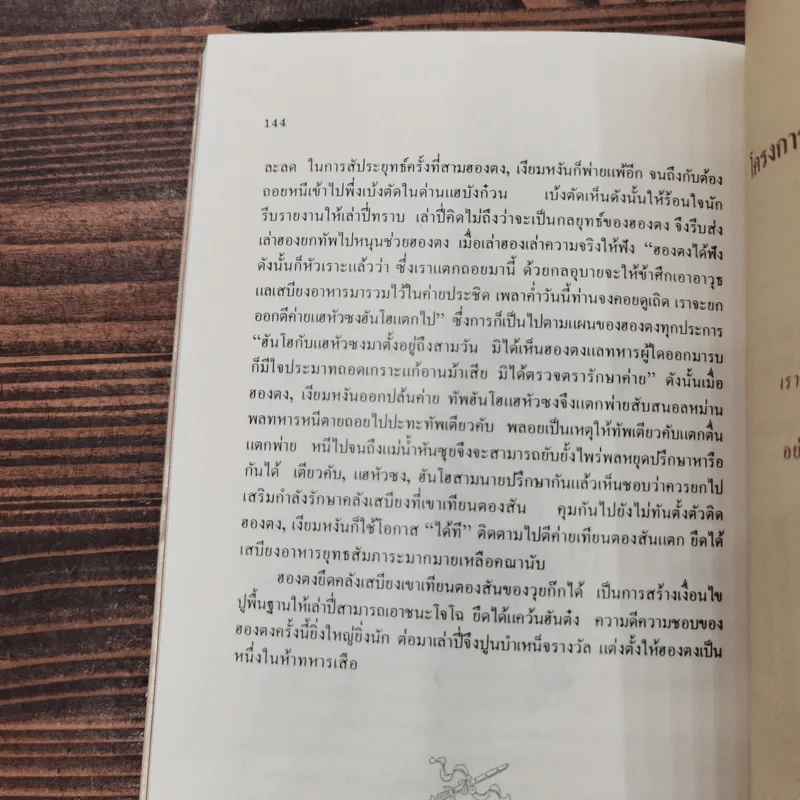 144
ละลด ในการสัประยุทธ์ครั้งที่สามฮองตง, เงียมหงันก็พ่ายแพ้อีก จนถึงกับต้อง
ถอยหนีเข้าไปพึ่งเบ้งตัดในด่านแฮบังก๋วน เบ้งตัดเห็นดังนั้นให้ร้อนใจนัก
รีบรายงานให้เล่าปี่ทราบ เล่าปี่คิดไม่ถึงว่าจะเป็นกลยุทธ์ของฮองตง จึงรีบส่ง
เล่าฮองยกทัพไปหนุนช่วยฮองตง เมื่อเล่าฮองเล่าความจริงให้ฟัง “ฮองตงได้ฟัง
ดังนั้นก็หัวเราะแล้วว่า ซึ่งเราแตกถอยมานี้ ด้วยกลอุบายจะให้ข้าศึกเอาอาวุธ
แลเสบียงอาหารมารวมไว้ในค่ายประชิด เพลาค่ำวันนี้ท่านจงคอยดูเถิด เราจะยก
ออกตีค่ายแฮหัวซงฮันโฮแตกไป” ซึ่งการก็เป็นไปตามแผนของฮองตงทุกประการ
“ฮันโฮกับแฮหัวซงมาตั้งอยู่ถึงสามวัน มิได้เห็นฮองตงแลทหารผู้ใดออกมารบ
ก็มีใจประมาทถอดเกราะแก้อานม้าเสีย มิได้ตรวจตรารักษาค่าย” ดังนั้นเมื่อ
ฮองตง, เงียมหงันออกปล้นค่าย ทัพฮันโฮแฮหัวซงจึงแตกพ่ายสับสนอลหม่าน
พลทหารหนีตายถอยไปปะทะทัพเตียวคับ พลอยเป็นเหตุให้ทัพเตียวคับแตกตื่น
แตกพ่าย หนีไปจนถึงแม่น้ำหันซุยจึงจะสามารถยับยั้งไพร่พลหยุดปรึกษาหารือ
กันได้ เตียวคับ, แฮหัวซง, ฮันโฮสามนายปรึกษากันแล้วเห็นชอบว่าควรยกไป
เสริมกำลังรักษาคลังเสบียงที่เขาเทียนตองสัน คุมกันไปยังไม่ทันตั้งตัวติด
ฮองตง, เงียมหงันก็ใช้โอกาส “ได้ที” ติดตามไปตีค่ายเทียนตองสันแตก ยึดได้
เสบียงอาหารยุทธสัมภาระมากมายเหลือคณานับ
ฮองตงยึดคลังเสบียงเขาเทียนตองสันของวุยก๊กได้ เป็นการสร้างเงื่อนไข
ปูพื้นฐานให้เล่าปี่สามารถเอาชนะโจโฉ ยึดได้แคว้นฮันต๋ง ความดีความชอบของ
ฮองตงครั้งนี้ยิ่งใหญ่ยิ่งนัก ต่อมาเล่าปี่จึงปูนบำเหน็จรางวัล แต่งตั้งให้ฮองตงเป็น
หนึ่งในห้าทหารเสือ
โครงการ
เรา